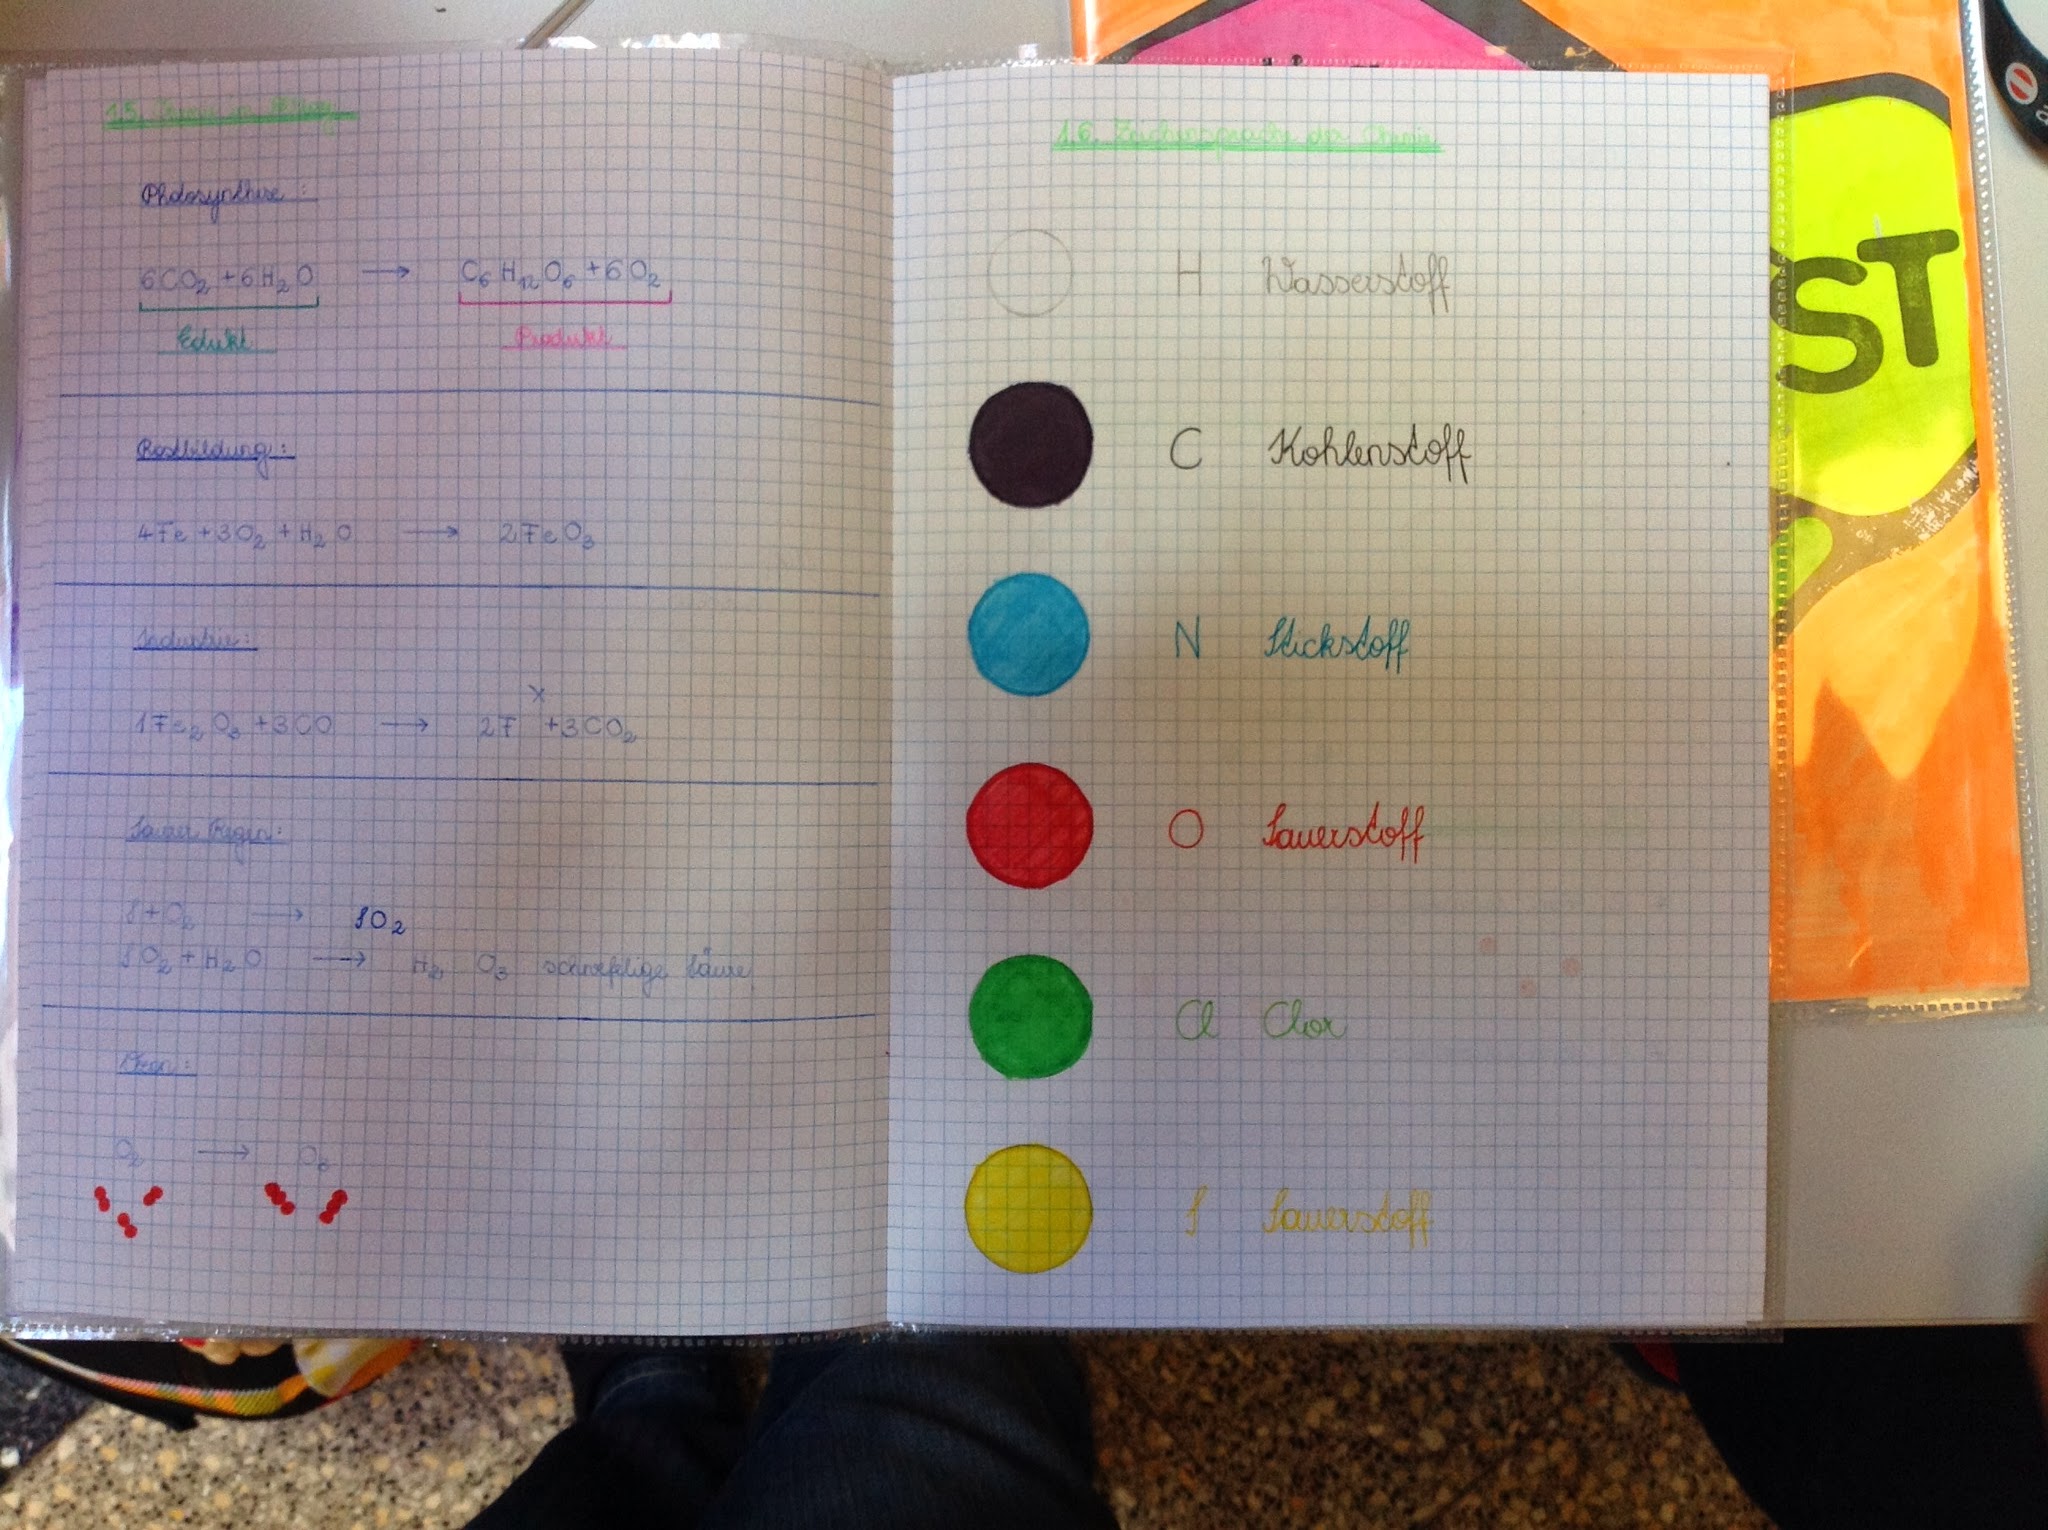 1.5. Chemie im Alltag
Photosynthese:
6CO₂ + 6H₂O → C₆H₁₂O₆ + 6O₂
Edukt Produkt
Rostbildung:
4Fe + 3O₂ + H₂O → 2FeO₃
Industrie:
x
1Fe₂O₃ + 3CO → 2F + 3CO₂
Saurer Regen:
S + O₂ → SO₂
SO₂ + H₂O → H₂ O₃ schwefelige Säure
O₂ →
1.6. Zeichensprache der Chemie
H Wasserstoff
C Kohlenstoff
N Stickstoff
O Sauerstoff
Cl Chlor
S Sauerstoff
ST